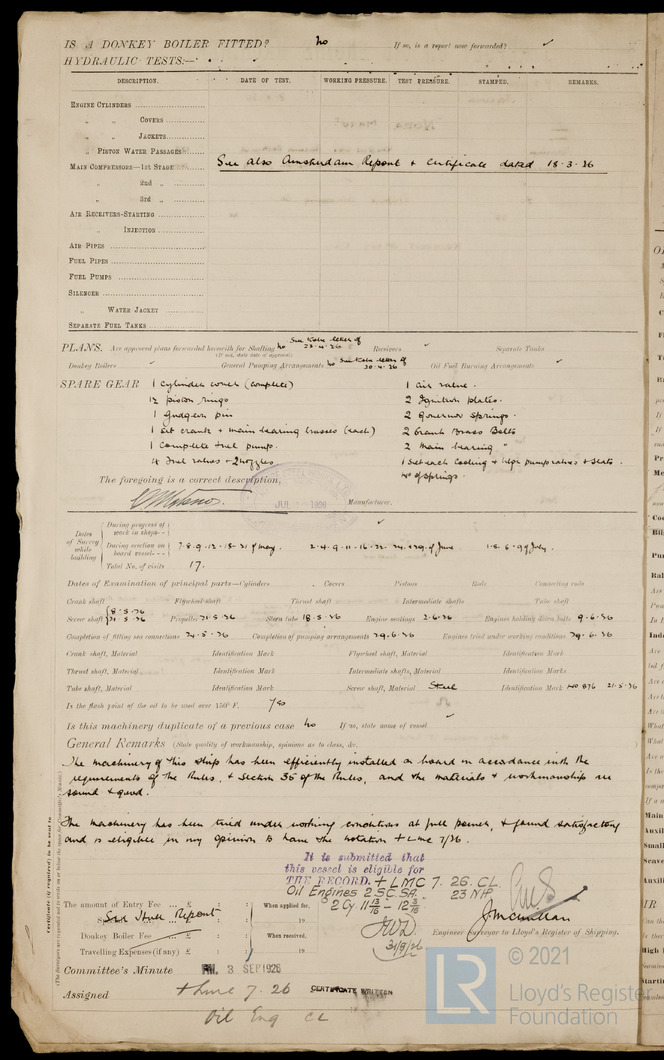 IS A DONKEY BOILER FITTED? no If so, is a report now forwarded? ✓
HYDRAULIC TESTS:—
DESCRIPTION. DATE OF TEST. WORKING PRESSURE. TEST PRESSURE. STAMPED. REMARKS.
ENGINE CYLINDERS
„ „ COVERS
„ „ JACKETS
„ PISTON WATER PASSAGES
MAIN COMPRESSORS—1st STAGE See also Amsterdam Report & Certificate dated 18.3.26
„ 2nd „
„ 3rd „
AIR RECEIVERS-STARTING
„ INJECTION
AIR PIPES
FUEL PIPES
FUEL PUMPS
SILENCER
„ WATER JACKET
SEPARATE FUEL TANKS
PLANS. Are approved plans forwarded herewith for Shafting no See Koln letter of 23.4.26 Receivers ✓ Separate Tanks
(If not, state date of approval)
Donkey Boilers ✓ General Pumping Arrangements no See Koln letter of 20.4.26 Oil Fuel Burning Arrangements ✓
SPARE GEAR 1 cylinder cover (complete) 1 air valve.
12 piston rings 2 Ignition plates.
1 gudgeon pin 2 Governor springs.
1 set crank & main bearing brasses (each) 2 Crank Brass Bolts
1 Complete fuel pump. 2 main bearing "
4 Fuel valves & 2 nozzles 1 Set each Cooling & bilge pump valves & seats.
No of springs.
The foregoing is a correct description,
JUL 1926
Manufacturer.
Dates of Survey while building
During progress of work in shops - - ✓
During erection on board vessel - - 7.8.9.12.18.21 of May. 2.4.9.11.16.22.24.29 of June. 1.2.6.9 of July.
Total No. of visits 17.
Dates of Examination of principal parts—Cylinders Covers Pistons Rods Connecting rods
Crank shaft Flywheel shaft Thrust shaft Intermediate shafts Tube shaft
Screw shaft 8.5.26 21.5.26 Propeller 21.5.26 Stern tube 18.5.26 Engine seatings 2.6.26 Engines holding down bolts 9.6.26
Completion of fitting sea connections 24.5.26 Completion of pumping arrangements 29.6.26 Engines tried under working conditions 29.6.26
Crank shaft, Material Identification Mark Flywheel shaft, Material Identification Mark
Thrust shaft, Material Identification Mark Intermediate shafts, Material Identification Marks
Tube shaft, Material Identification Mark Screw shaft, Material Steel Identification Mark No 876 21.5.26
Is the flash point of the oil to be used over 150° F. Yes
Is this machinery duplicate of a previous case No If so, state name of vessel ✓
General Remarks (State quality of workmanship, opinions as to class, &c.
The machinery of this ship has been efficiently installed on board in accordance with the
requirements of the Rules, & Section 35 of the Rules, and the materials & workmanship are
sound & good.
The machinery has been tried under working conditions at full power, & found satisfactory
and is eligible in my opinion to have the notation + LMC 7/26.
It is submitted that
this vessel is eligible for
THE RECORD. + LMC 7. 26. CL
Oil Engines 2 S.C. S.A. 23 NH
2 Cy
31/8/26
The amount of Entry Fee ... £ : : When applied for,
See Hull Report 19
Donkey Boiler Fee ... ... £ : : When received,
Travelling Expenses (if any) £ : : 19
Engineer Surveyor to Lloyd's Register of Shipping.
Committee's Minute FRI. 3 SEP 1926
Assigned + LMC 7. 26 CERTIFICATE WRITTEN
Oil Eng CL
Certificate (if required) to be sent to
© 2021
LR Lloyd's Register
Foundation